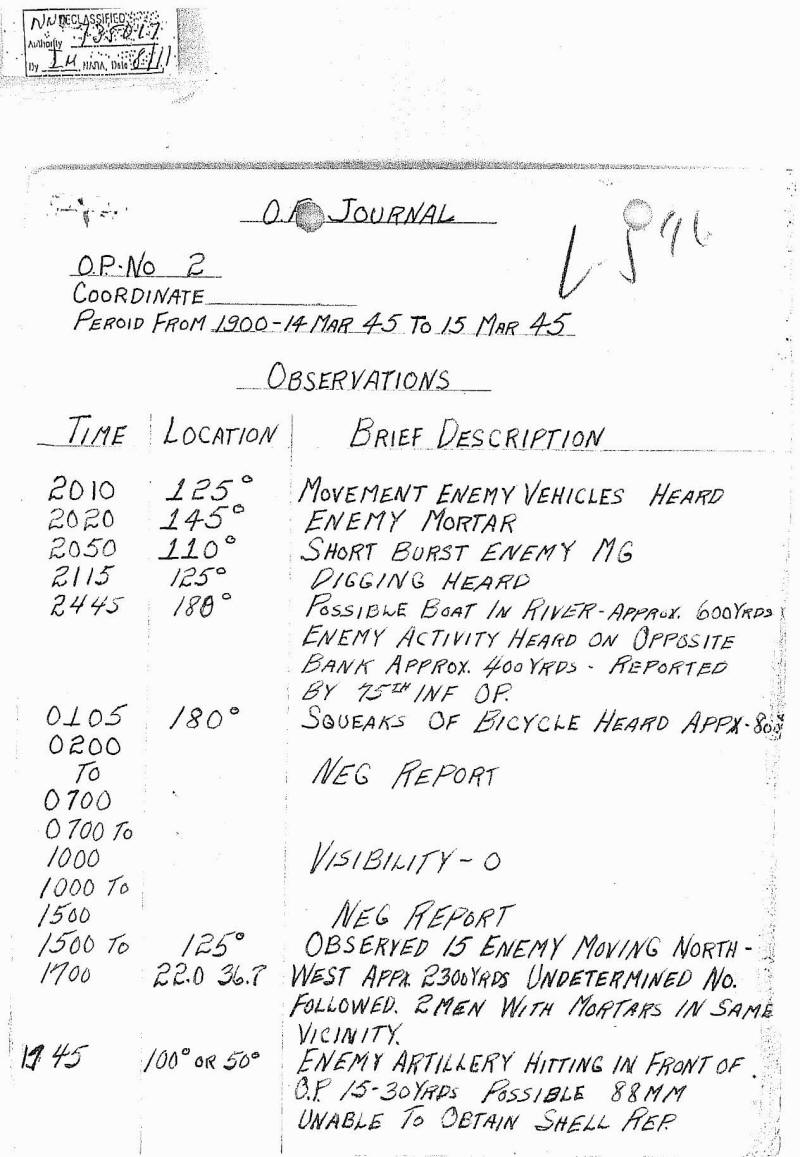 NN DECLASSIFIED
Authority 735017
By IH NARA, Date 8/11
O.P. JOURNAL
O.P. No 2
COORDINATE
PEROID FROM 1900-14 MAR 45 TO 15 MAR 45
OBSERVATIONS
TIME LOCATION BRIEF DESCRIPTION
2010 125° MOVEMENT ENEMY VEHICLES HEARD
2020 145° ENEMY MORTAR
2050 110° SHORT BURST ENEMY MG
2115 125° DIGGING HEARD
2445 180° POSSIBLE BOAT IN RIVER-APPROX. 600YRDS
ENEMY ACTIVITY HEARD ON OPPOSITE
BANK APPROX. 400YRDS - REPORTED
BY 75TH INF OP.
0105 180° SQUEAKS OF BICYCLE HEARD APPX-800
0200
TO NEG REPORT
0700
0700 TO
1000 VISIBILITY - 0
1000 TO
1500 NEG REPORT
1500 TO 125° OBSERVED 15 ENEMY MOVING NORTH-
1700 22.0 36.7 WEST APPX 2300YRDS UNDETERMINED NO.
FOLLOWED. 2 MEN WITH MORTARS IN SAME
VICINITY.
1945 100° OR 50° ENEMY ARTILLERY HITTING IN FRONT OF
O.P. 15-30YRDS POSSIBLE 88MM
UNABLE TO OBTAIN SHELL REP.